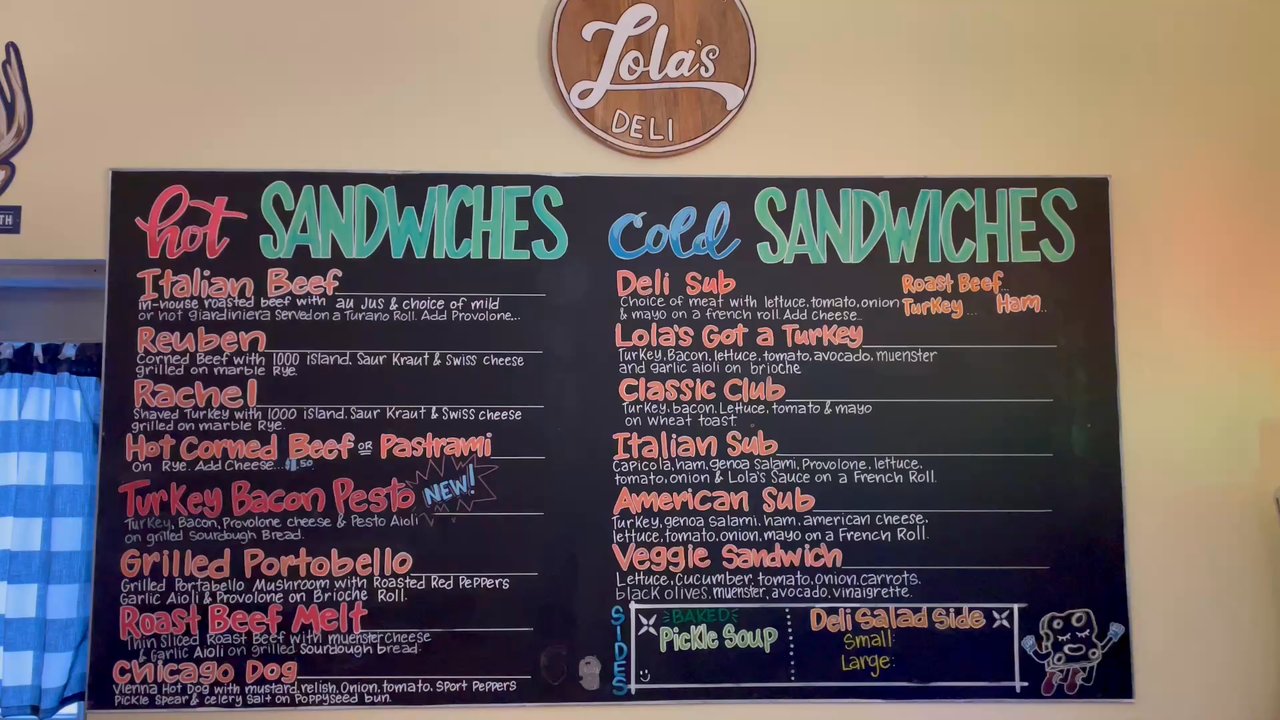 Lola's
DELI
TH
hot SANDWICHES
Italian Beef
in-house roasted beef with au Jus & choice of mild
or hot giardiniera served on a Turano Roll. Add Provolone...
Reuben
Corned Beef with 1000 island, Saur Kraut & Swiss cheese
grilled on marble Rye.
Rachel
Shaved Turkey with 1000 island, Saur Kraut & Swiss cheese
grilled on marble Rye.
Hot Corned Beef OR Pastrami
on Rye. Add Cheese...$1.50
Turkey Bacon Pesto NEW!
Turkey, Bacon, Provolone cheese & Pesto Aioli
on grilled Sourdough Bread.
Grilled Portobello
Grilled Portabello Mushroom with Roasted Red Peppers
Garlic Aioli & Provolone on Brioche Roll.
Roast Beef Melt
Thin Sliced Roast Beef with muenster cheese
& Garlic Aioli on grilled Sourdough bread.
Chicago Dog
Vienna Hot Dog with mustard, relish, Onion, tomato, Sport Peppers
Pickle Spear & celery salt on Poppyseed bun.
cold SANDWICHES
Deli Sub
Choice of meat with lettuce, tomato, onion
& mayo on a french roll. Add cheese...
Roast Beef...
Turkey... Ham...
Lola's Got a Turkey
Turkey, Bacon, lettuce, tomato, avocado, muenster
and garlic aioli on brioche
Classic Club
Turkey, bacon, Lettuce, tomato & mayo
on wheat toast.
Italian Sub
Capicola, ham, genoa Salami, Provolone, lettuce,
tomato, onion & Lola's Sauce on a French Roll.
American Sub
Turkey, genoa Salami, ham, american cheese,
lettuce, tomato, onion, mayo on a French Roll.
Veggie Sandwich
Lettuce, cucumber, tomato, onion, carrots,
black olives, muenster, avocado, vinaigrette.
SIDES
BAKED
Pickle Soup
Deli Salad Side
Small:
Large: